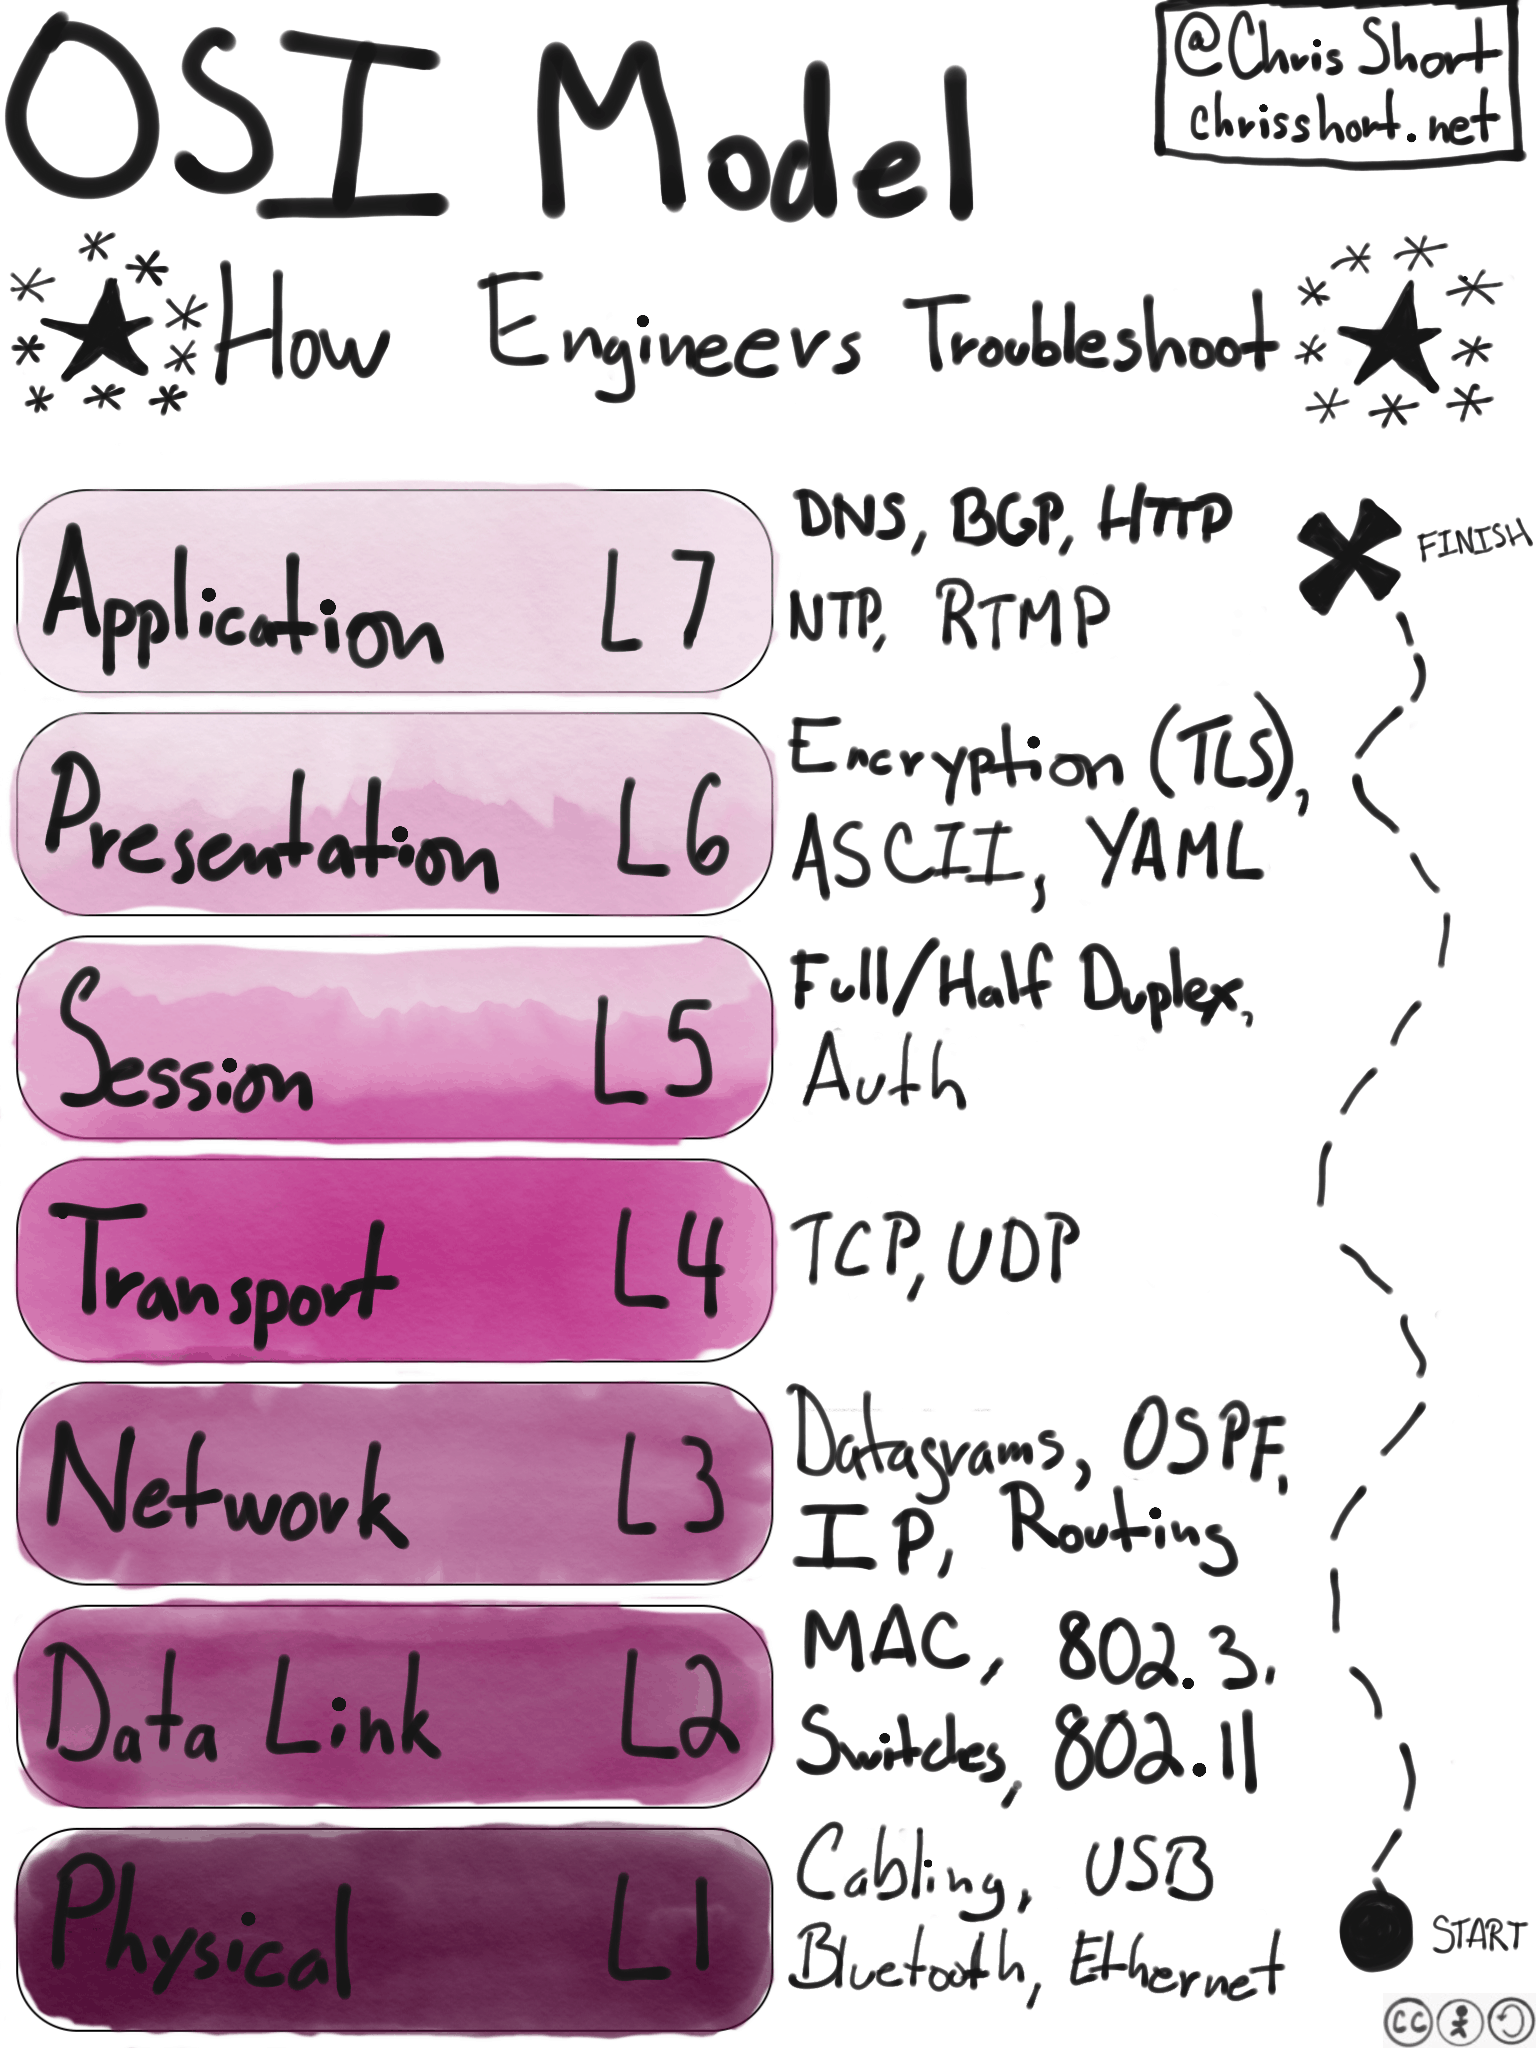 OSI Model
@Chris Short
chrisshort.net
How Engineers Troubleshoot
Application L7
DNS, BGP, HTTP
NTP, RTMP
FINISH
Presentation L6
Encryption (TLS),
ASCII, YAML
Session L5
Full/Half Duplex,
Auth
Transport L4
TCP, UDP
Network L3
Datagrams, OSPF,
IP, Routing
Data Link L2
MAC, 802.3,
Switches, 802.11
Physical L1
Cabling, USB
Bluetooth, Ethernet
START
CC